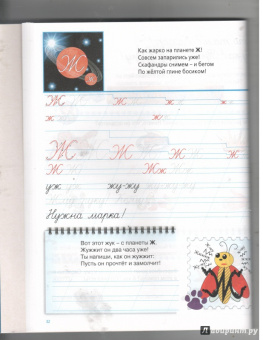 Ж
Как жарко на планете Ж!
Совсем запарились уже!
Скафандры снимем – и бегом
По жёлтой глине босиком!
Ж Ж ж ж
ж ж
Ж Ж Ж Ж
Ж Жж ж
уж жу-жу
Нужна марка!
Вот этот жук – с планеты Ж.
Жужжит он два часа уже!
Ты напиши, как он жужжит:
Пусть он прочтёт и замолчит!